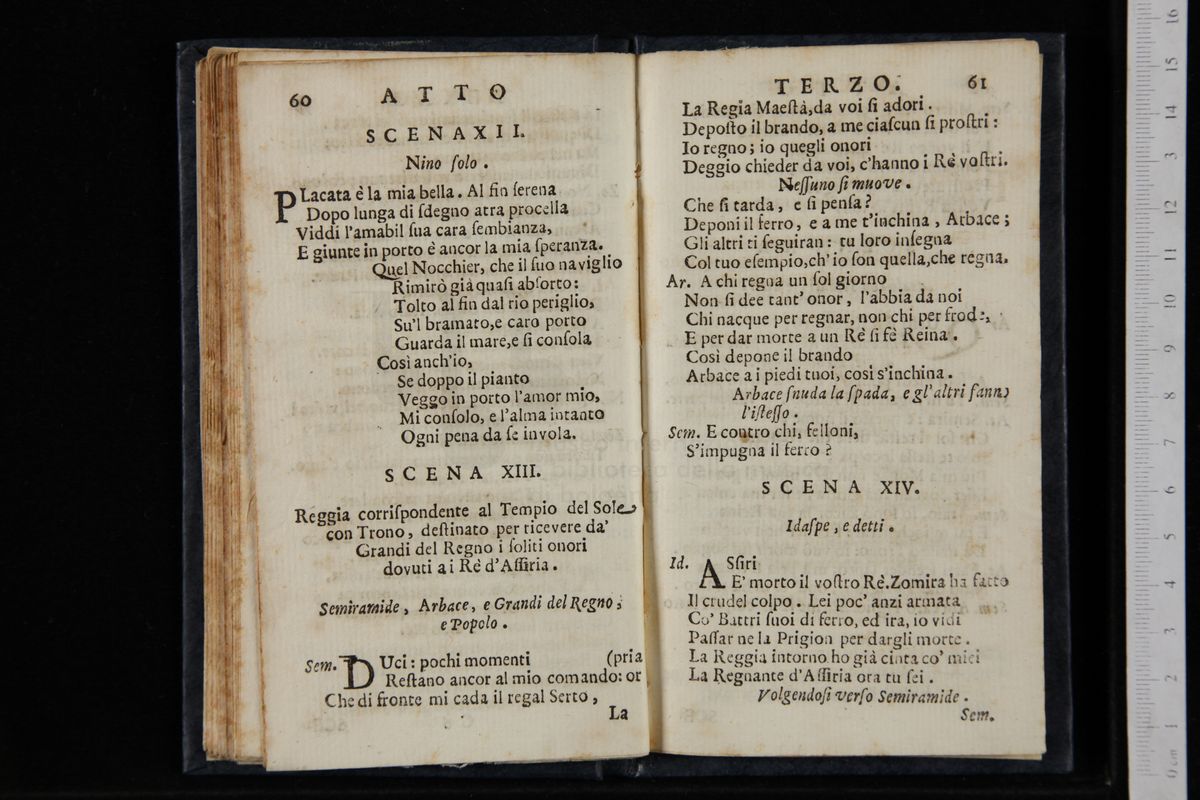 60 ATTO
SCENA XII.
Nino ſolo.
PLacata è la mia bella. Al fin ſerena
Dopo lunga di ſdegno atra procella
Viddi l'amabil ſua cara ſembianza,
E giunte in porto è ancor la mia ſperanza.
Quel Nocchier, che il ſuo naviglio
Rimirò già quaſi abſorto:
Tolto al fin dal rio periglio,
Su'l bramato, e caro porto
Guarda il mare, e ſi conſola
Così anch'io,
Se doppo il pianto
Veggo in porto l'amor mio,
Mi conſolo, e l'alma intanto
Ogni pena da ſe invola.
SCENA XIII.
Reggia corriſpondente al Tempio del Sole
con Trono, deſtinato per ricevere da'
Grandi del Regno i ſoliti onori
dovuti ai Rè d'Aſſiria.
Semiramide, Arbace, e Grandi del Regno,
e Popolo.
Sem. DUci: pochi momenti (pria
Reſtano ancor al mio comando: or
Che di fronte mi cada il regal Serto,
La
TERZO. 61
La Regia Maeſtà, da voi ſi adori.
Depoſto il brando, a me ciaſcun ſi proſtri:
Io regno; io quegli onori
Deggio chieder da voi, c'hanno i Rè voſtri.
Neſſuno ſi muove.
Che ſi tarda, e ſi penſa?
Deponi il ferro, e a me t'inchina, Arbace;
Gli altri ti ſeguiran: tu loro inſegna
Col tuo eſempio, ch'io ſon quella, che regna.
Ar. A chi regna un ſol giorno
Non ſi dee tant' onor, l'abbia da noi
Chi nacque per regnar, non chi per frode,
E per dar morte a un Rè ſi fè Reina.
Così depone il brando
Arbace a i piedi tuoi, cosi s'inchina.
Arbace ſnuda la ſpada, e gl'altri fanno
l'iſteſſo.
Sem. E contro chi, felloni,
S'impugna il ferro?
SCENA XIV.
Idaſpe, e detti.
Id. ASſiri
E' morto il voſtro Rè. Zomira ha fatto
Il crudel colpo. Lei poc' anzi armata
Co' Battri ſuoi di ferro, ed ira, io vidi
Paſſar ne la Prigion per dargli morte.
La Reggia intorno ho già cinta co' miei
La Regnante d'Aſſiria ora tu ſei.
Volgendoſi verſo Semiramide.
Sem.
0 cm 1 2 3 4 5 6 7 8 9 10 11 12 13 14 15 16